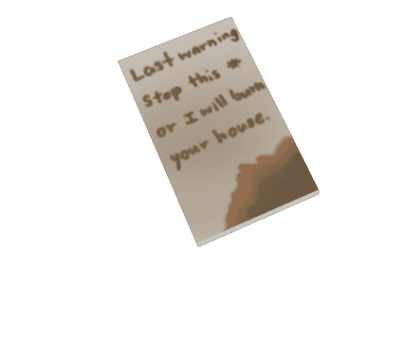 Last warning
Stop this *
or I will burn
your house.